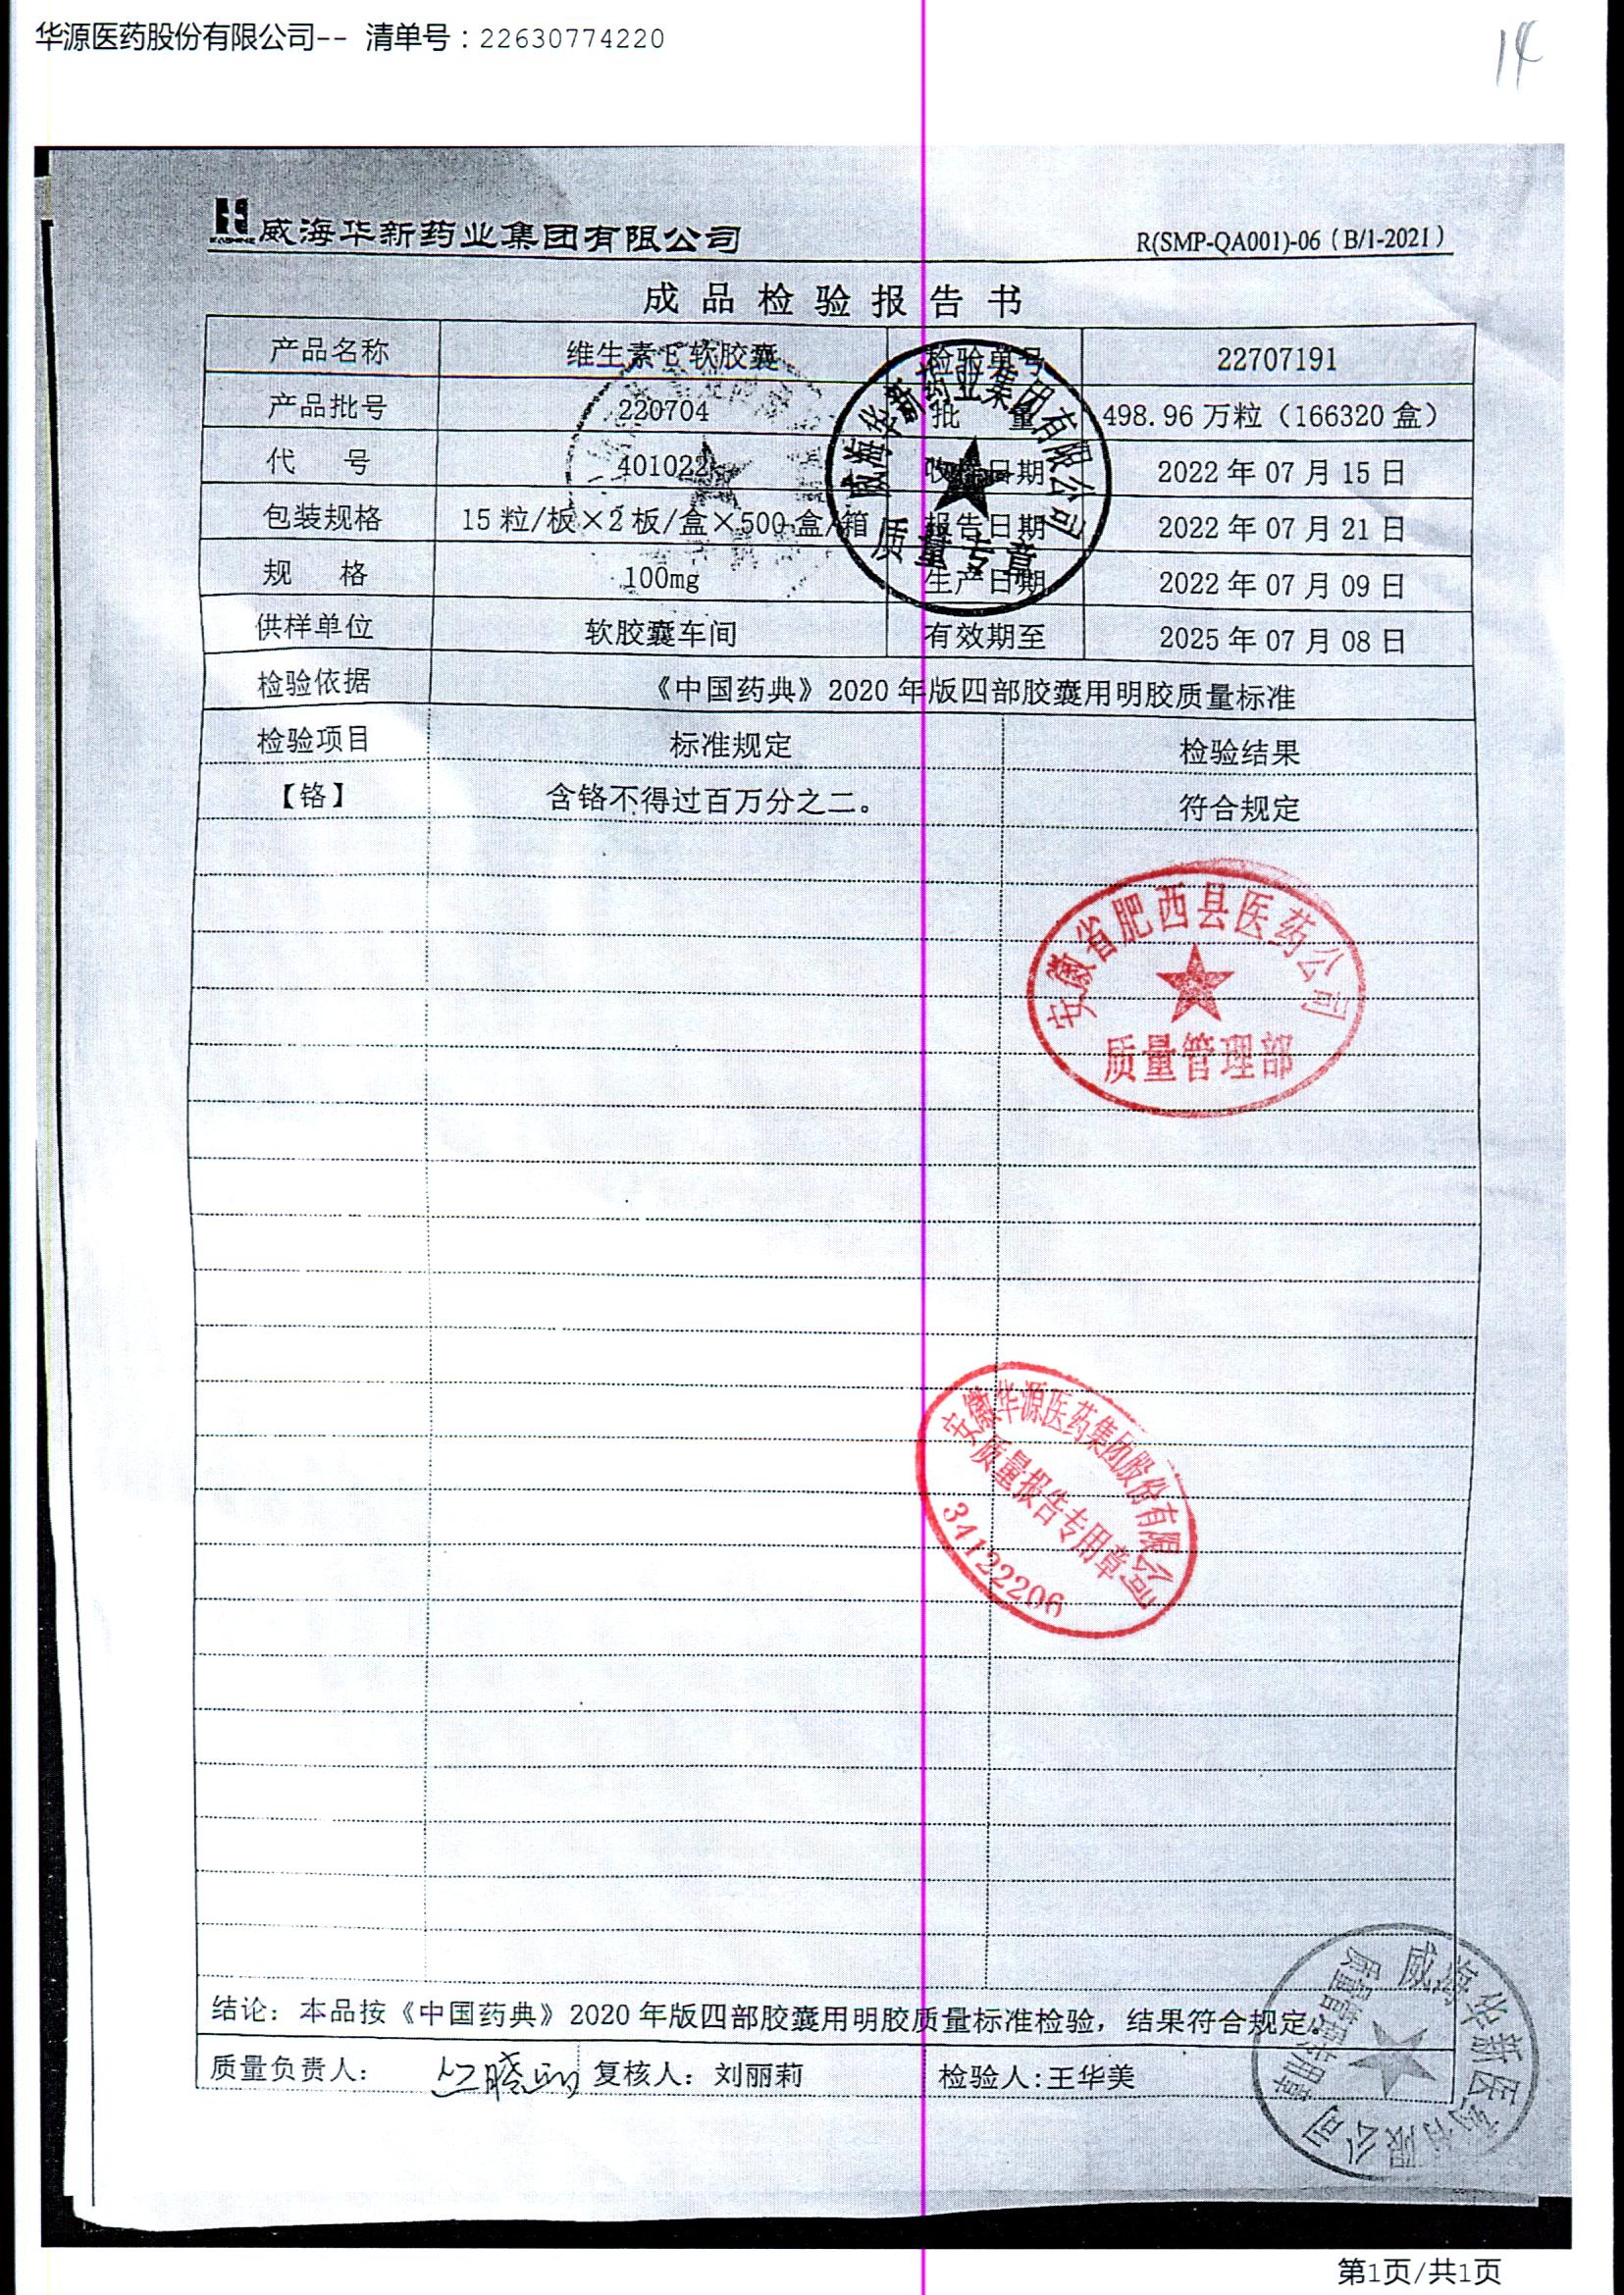 华源医药股份有限公司-- 清单号：22630774220
14
威海华新药业集团有限公司 R(SMP-QA001)-06（B/1-2021）
成品检验报告书
产品名称 维生素E软胶囊 检验单号 22707191
产品批号 220704 批 量 498.96 万粒（166320 盒）
代 号 401022 收样日期 2022 年 07 月 15 日
包装规格 15 粒/板×2 板/盒×500 盒/箱 报告日期 2022 年 07 月 21 日
规 格 100mg 生产日期 2022 年 07 月 09 日
供样单位 软胶囊车间 有效期至 2025 年 07 月 08 日
检验依据 《中国药典》2020 年版四部胶囊用明胶质量标准
检验项目 标准规定 检验结果
【铬】 含铬不得过百万分之二。 符合规定
威海华新药业集团有限公司
质量专章
安徽省肥西县医药公司
质量管理部
安徽华源医药集团股份有限公司
质量报告专用章
34122206
结论：本品按《中国药典》2020 年版四部胶囊用明胶质量标准检验，结果符合规定。
质量负责人： 复核人：刘丽莉 检验人:王华美
威海华新医药有限公司
质量管理专用章
第1页/共1页